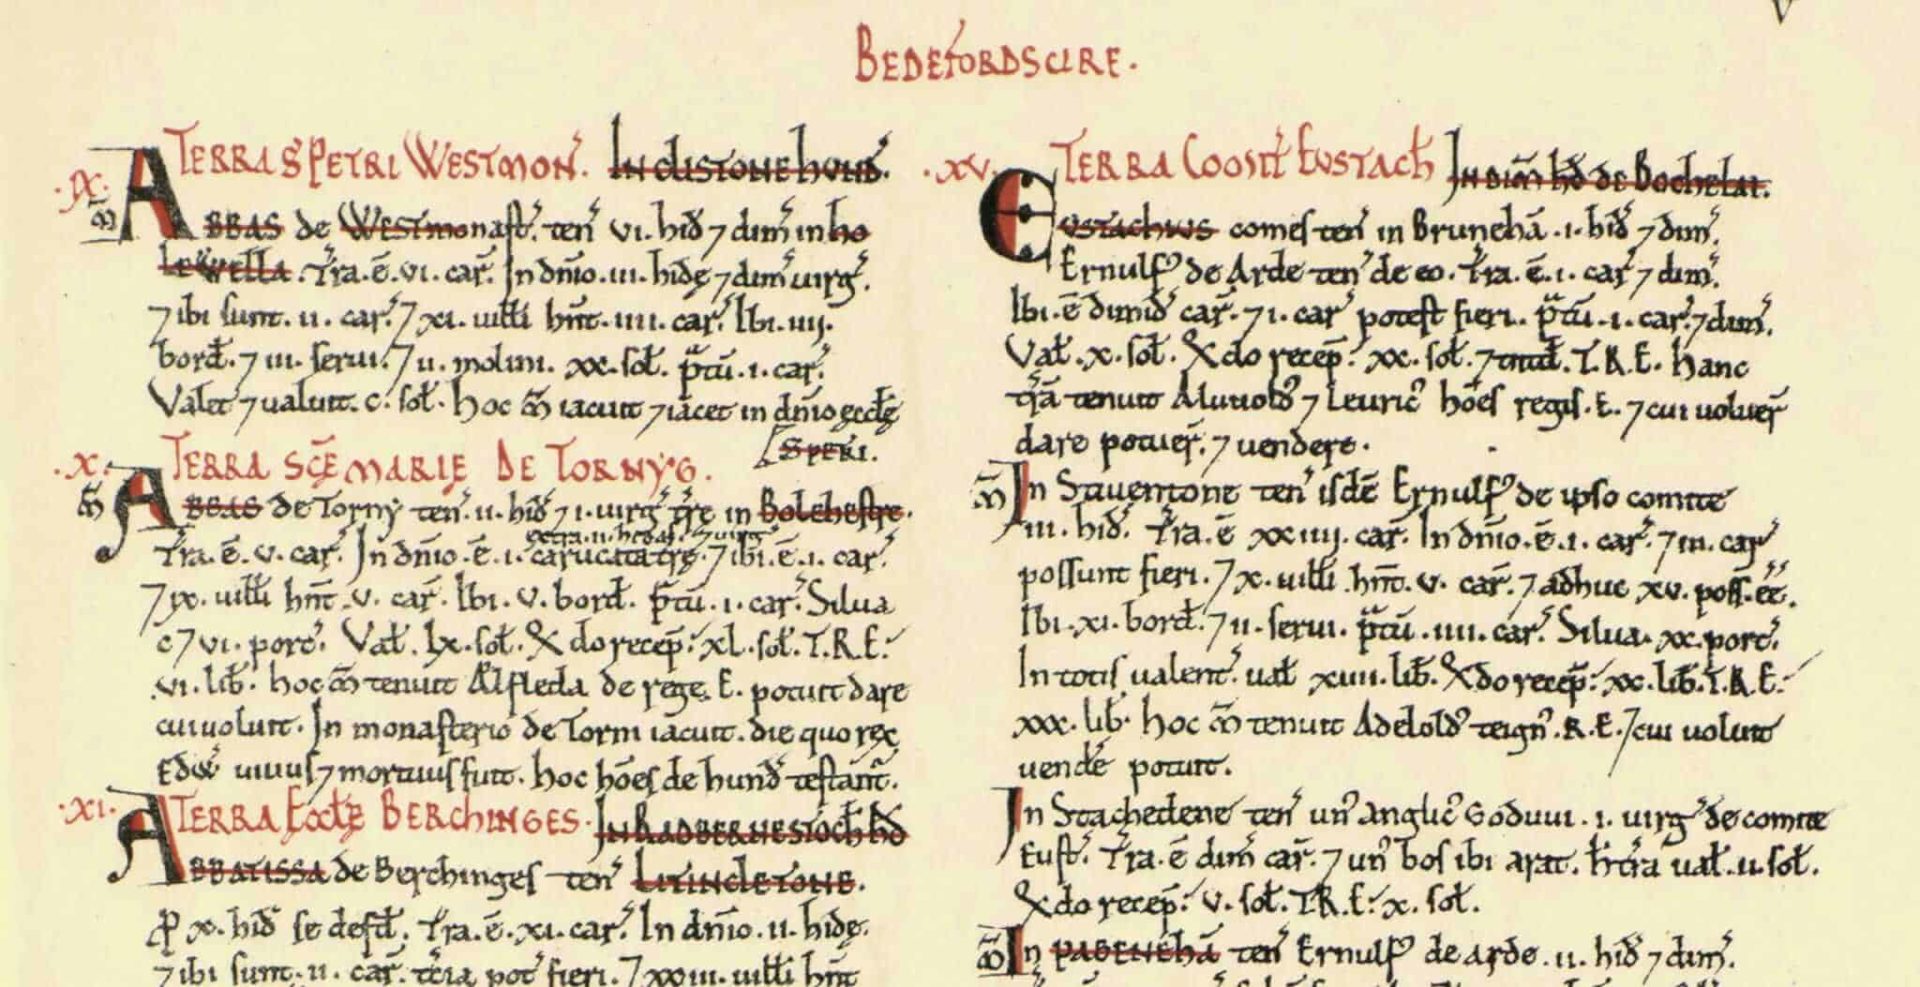 BEDEFORDSCIRE.
.IX. TERRA S PETRI WESTMON̄. IN CLISTONE HUND̄.
m̄ ABBAS de Westmonast̄. ten̄ .vi. hid̄ ⁊ dim̄ in ho
lewella. Tr̄a.ē.vi. car̄. In dn̄io .iii. hidę ⁊ dim̄ uirg̃.
⁊ ibi sunt .ii. car̄. ⁊ xi. uilłi hn̄t .iiii. car̄. Ibi .iiii.
bord̄. ⁊ iii. serui. ⁊ ii. molini. xx. soł. p̃tū .i. car̄.
Valet ⁊ ualuit .c. soł. hoc m̄ iacuit ⁊ iacet in dn̄io ęcclę
[S PETRI.
.X. TERRA SCE MARIE DE TORNYG.
m̄ ABBAS de Torny ten̄ .ii. hid̄ ⁊ i. uirg̃ tr̄e in Bolehestre.
extra .ii. hidas. ⁊ uirg̃
Tr̄a.ē.v. car̄. In dn̄io.ē.i. carucata tr̄ę. ⁊ ibi.ē.i. car̄.
⁊ ix. uilłi hn̄t .v. car̄. Ibi .v. bord̄. p̃tū .i. car̄. Silua
c ⁊ vi. porc̄. Vał. lx. soł. Q̄do recep̄: xl. soł. T.R.E:
vi. lib̄. hoc m̄ tenuit Ælfleda de rege. E. potuit dare
cui uoluit. In monasterio de Torni iacuit. die quo rex
Edw̄ uiuus ⁊ mortuus fuit. hoc hōes de hund̄ testant̄.
.XI. TERRA ECCLE BERCHINGES. IN RADBERNESTOCH HD̄
ABBATISSA de Berchinges ten̄ LITINCLETONE.
P̱ x. hid̄ se defd̄. Tr̄a.ē.xi. car̄. In dn̄io .ii. hidę.
⁊ ibi sunt .ii. car̄. t̄cia pot̄ fieri. ⁊ xxiii. uilłi hn̄t
.XV. TERRA COMIT̄ EUSTACH̄ IN DIM̄ HD̄ DE BOCHELAI.
EUSTACHIUS comes ten̄ in Brunehā .i. hid̄ ⁊ dim̄.
Ernulf' de Arde ten̄ de eo. Tr̄a.ē.i. car̄ ⁊ dim̄.
Ibi.ē dimid̄ car̄. ⁊ i. car̄ potest fieri. p̃tū .i. car̄. ⁊ dim̄.
Vał .x. soł. Q̄do recep̄: xx. soł. ⁊ tntd̄. T.R.E. hanc
tr̄ā tenuit Aluuold' ⁊ Leuric' hōes regis. E. ⁊ cui uoluer̄
dare potuer̄. ⁊ uendere.
m̄ In Stiuentone ten̄ isdē Ernulf' de ipso comite
iii. hid̄. Tr̄a.ē xxiiii. car̄. In dn̄io.ē.i. car̄. ⁊ iii. car̄
possunt fieri. ⁊ x. uilłi hn̄t .v. car̄. ⁊ adhuc xv. poss.eē.
Ibi .xi. bord̄. ⁊ ii. serui. p̃tū .iiii. car̄. Silua. xx. porc̄.
In totis ualent̄. uał xviii. lib̄. Q̄do recep̄: xx. lib̄. T.R.E:
xxx. lib̄. hoc m̄ tenuit Adelold' teign'. R.E. ⁊ cui uoluit
uendē potuit.
In Stachedene ten̄ un' anglic' Goduui .i. uirg̃ de comite
Eust̄. Tr̄a.ē dim̄ car̄. ⁊ un' bos ibi arat. H̄ tr̄a uał .ii. soł.
Q̄do recep̄: v. soł. T.R.E: x. soł.
m̄ In PABENEHĀ ten̄ Ernulf' de arde .ii. hid̄ ⁊ dim̄.